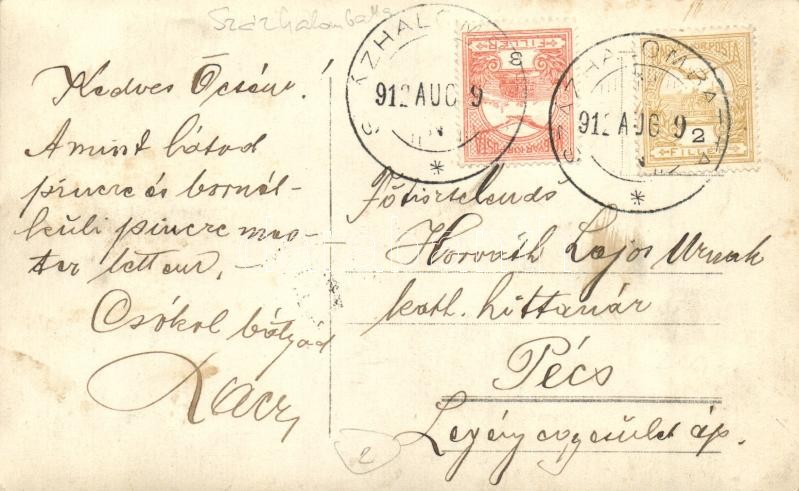 Százhalombatta
Kedves Öcsém!
Amint látod
pincre és bornél-
küli pincre mes-
ter lettem,
Csókol bátyád
SZÁZHALOMBATTA
912 AUG 9
FILLÉR
MAGYAR KIR. POSTA
SZÁZHALOMBATTA
912 AUG 9
2
FILLÉR
Főtisztelendő
Horváth Lajos Urnak
kath. hittanár
Pécs
Legényegyesület ép.
2